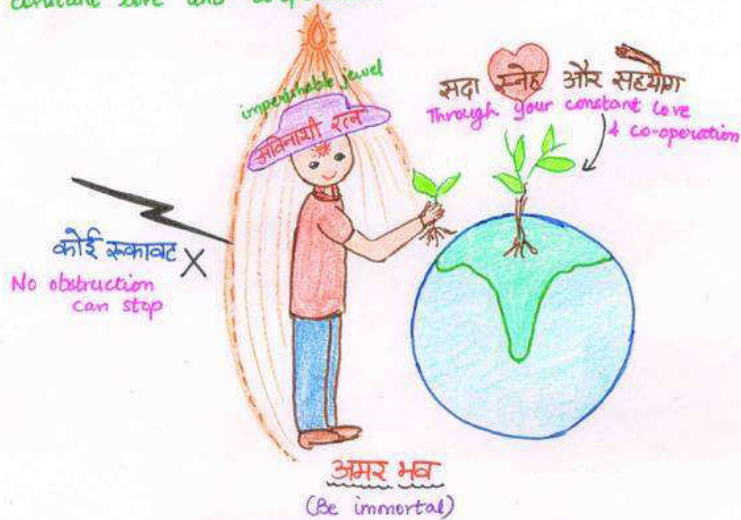 constant love and co-operation
imperishable jewel
अविनाशी रत्न
सदा स्नेह और सहयोग
Through your constant love
& co-operation
कोई रुकावट
No obstruction
can stop
अमर भव
(Be immortal)